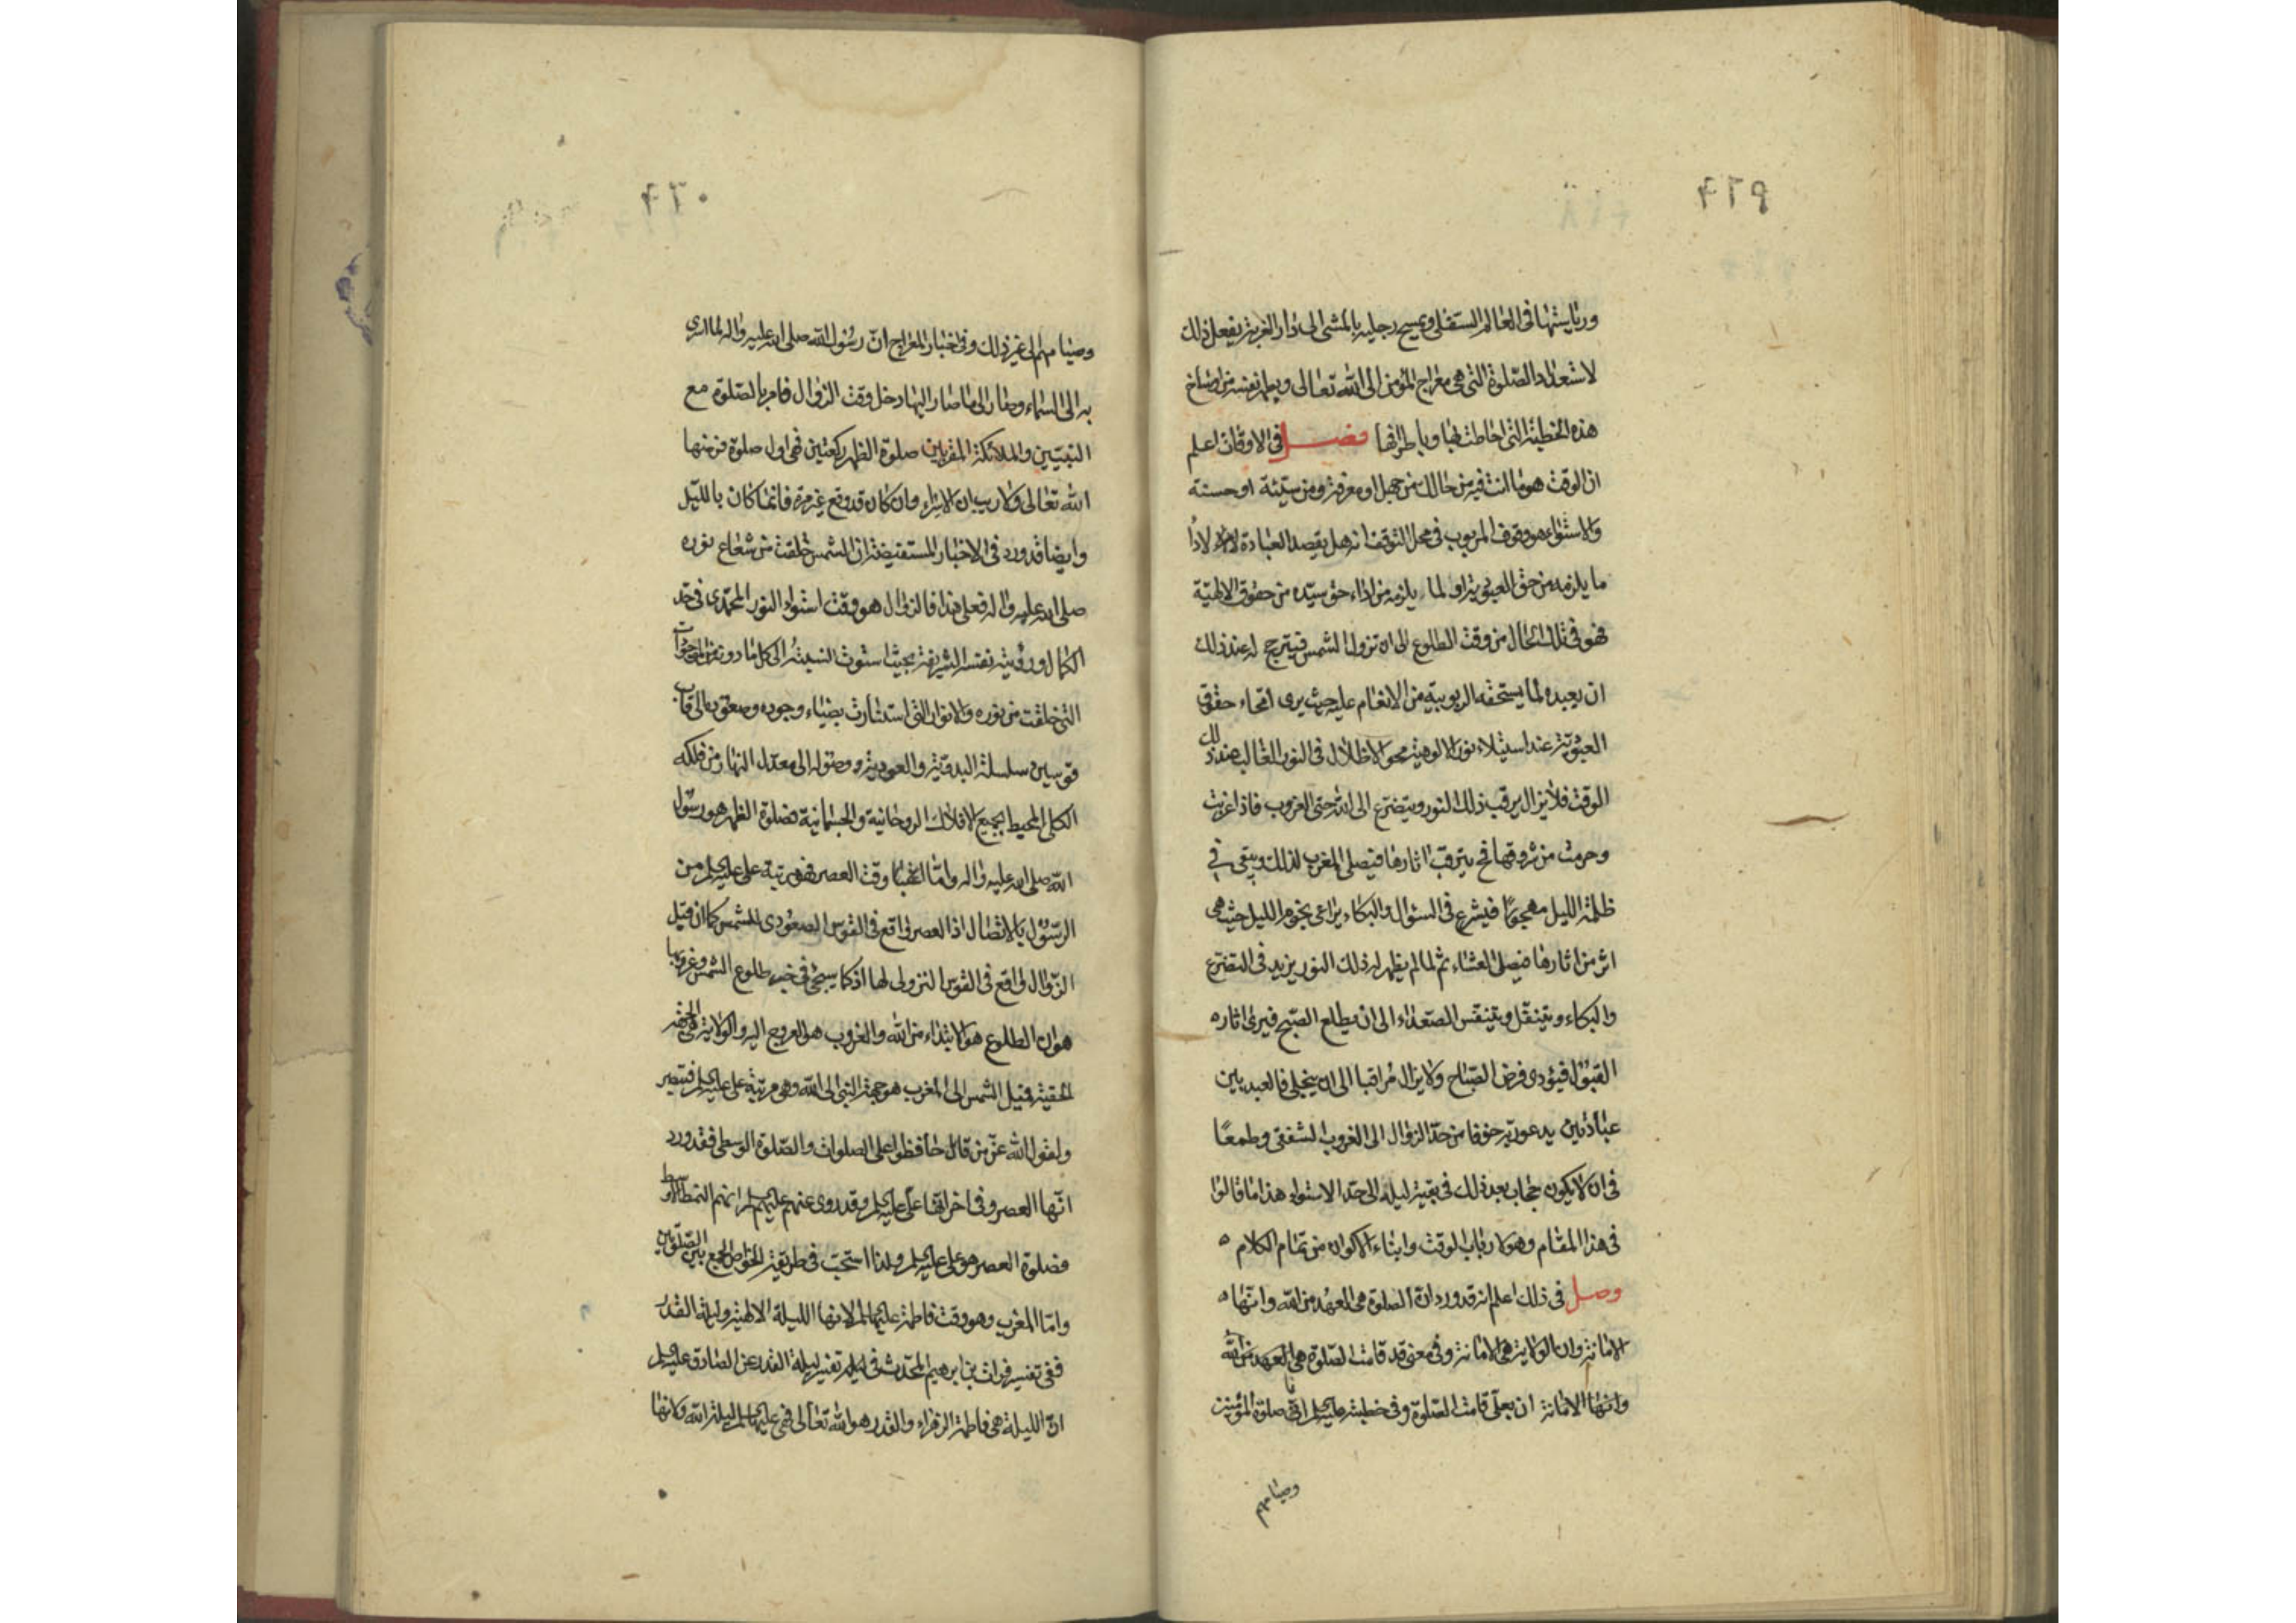 ورياستها فى العالم السفلى ويمسح رجليه بالمشى الى دار الغربة يفعل ذلك
لاستعداد الصّلوة التى هى معراج المؤمن الى الله تعالى ويطهر نفسه من اوساخ
هذه الخطيئة التى احاطت بها وباطرافها فصل فى الاوقات اعلم
ان الوقت هو ما انت فيه من حالك من جهل او معرفة ومن سيّئة او حسنة
والاستواء هو وقوف المربوب فى محل التوقف انه هل يقصد العبادة لاداء
ما يلزمه من حق العبودية او لما يلزمه من اداء حق سيّده من حقوق الالهيّة
فهو فى تلك الحال من وقت الطلوع الى ان تزول الشمس فيترجح له عند ذلك
ان يعبده لما يستحقه الربوبية من الانعام عليه حيث يرى امحاء حقوق
العبوديّة عند استيلاء نور الالوهية محو الاظلال فى النور الغالب عند ذلك
الوقت فلا يزال يرقب ذلك النور ويتضرع الى الله حتى الغروب فاذا غربت
وحرمت من شروقها فح يترقب اثارها فيصلى المغرب لذلك ويبقى فى
ظلمة الليل مهجورًا فيشرع فى السؤال والبكاء يراعى نجوم الليل حيث هى
اثر من اثارها فيصلى العشاء ثم لما لم يظهر له ذلك النور يزيد فى التضرع
والبكاء ويتنفّل ويتنفّس الصّعداء الى ان يطلع الصّبح فيرى اثاره
القبول فيؤدى فرض الصّباح ولا يزال مراقبا الى ان يتجلى فالعبد بين
عبادتين يدعو ربّه خوفا من حدّ الزوال الى الغروب الشفقى وطمعًا
فى ان لا يكون حجاب بعد ذلك فى بقية ليله الى حدّ الاستواء هذا ما قالوا
فى هذا المقام وهو لارباب الوقت وابناء الاكوان من تمام الكلام
وصل فى ذلك اعلم انه قد ورد انّ الصلوة هى العهد من الله وانّها
الامانة وان الولاية هى الامانة وفى معنى قد قامت الصّلوة هى العهد من الله
وانّها الامانة ان بعلّى قامت الصّلوة وفى خطبته عليه السلم انا صلوة المؤمنين
وصيامهم
وصيامهم الى غير ذلك وفى اخبار المعراج انّ رسول الله صلى الله عليه واله لما اسرى
به الى السماء وصار الى ما صار اليها دخل وقت الزوال فامر بالصّلوة مع
النبيّين والملائكة المقرّبين صلوة الظهر ركعتين فهى اول صلوة فرضها
الله تعالى ولا ريب ان الاسراء وان كان قد وقع غير مرة فانما كان بالليل
وايضا قد ورد فى الاخبار المستفيضة ان الشمس خلقت من شعاع نوره
صلى الله عليه واله فعلى هذا فالزوال هو وقت استواء النور المحمّدى فى حدّ
الكمال ورؤية نفسه الشريفة بحيث استوت النسبة الى كل ما دونه من الموجودات
التى خلقت من نوره والانوار التى استنارت بضياء وجوده وصعوده الى قاب
قوسين سلسلة البدئيّة والعودية ووصوله الى معدّل النهار من فلكه
الكلى المحيط بجميع الافلاك الروحانية والجسمانية فصلوة الظهر هو رسول
الله صلى الله عليه واله وامّا وقت العصر فهو مرتبة على عليه السلم من
الرّسول بالاتصال اذ العصر واقع فى القوس الصعودى للشمس كما ان قبل
الزوال واقع فى القوس النزولى لها اذ كما سيجئ فى خبر طلوع الشمس وغروبها
هو ان الطلوع هو الابتداء من الله والغروب هو العروج اليه والولاية
الحقيّة فميل الشمس الى المغرب هو جهة النبى الى الله وهى مرتبة على عليه السلم فتبصر
ولقول الله عزّ من قائل حافظوا على الصلوات والصّلوة الوسطى فقد ورد
انّها العصر وفى اخر انّها على عليه السلم وقد روى عنهم عليهم السلم انهم النمط الاوسط
فصلوة العصر هو على عليه السلم ولذا استحبّ فى طريقة الخواص الجمع بين الصّلوتين
وامّا المغرب وهو وقت فاطمة عليها السلم لانها الليلة الالهية وليلة القدر
ففى تفسير فرات بن ابرهيم المحدّث فى تفسير ليلة القدر عن الصادق عليه السلم
انّ الليلة هى فاطمة الزهراء والقدر هو الله تعالى فهى عليها السلم ليلة الله ولانها